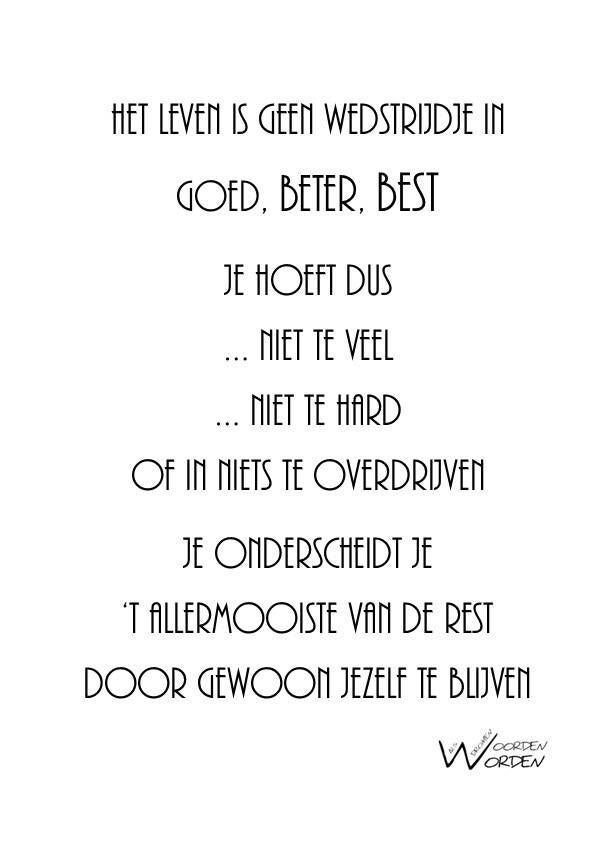 HET LEVEN IS GEEN WEDSTRIJDJE IN
GOED, BETER, BEST
JE HOEFT DUS
... NIET TE VEEL
... NIET TE HARD
OF IN NIETS TE OVERDRIJVEN
JE ONDERSCHEIDT JE
‘T ALLERMOOISTE VAN DE REST
DOOR GEWOON JEZELF TE BLIJVEN
ALS DROMEN WOORDEN
WORDEN